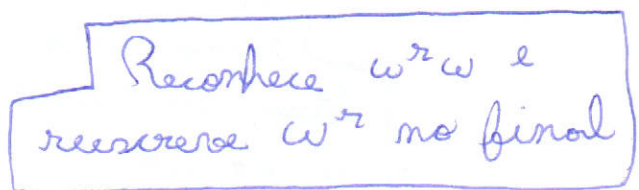 Reconhece ω^r ω e
reescreve ω^r no final